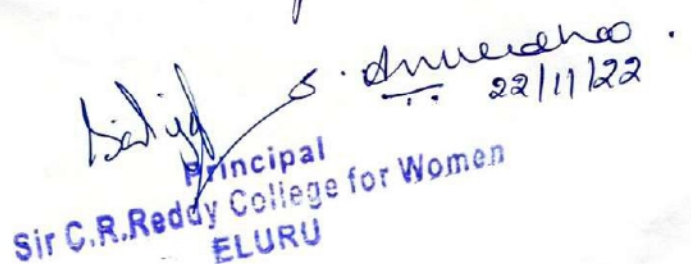 S. Anuradha.
22/11/22
Principal
Sir C.R.Reddy College for Women
ELURU